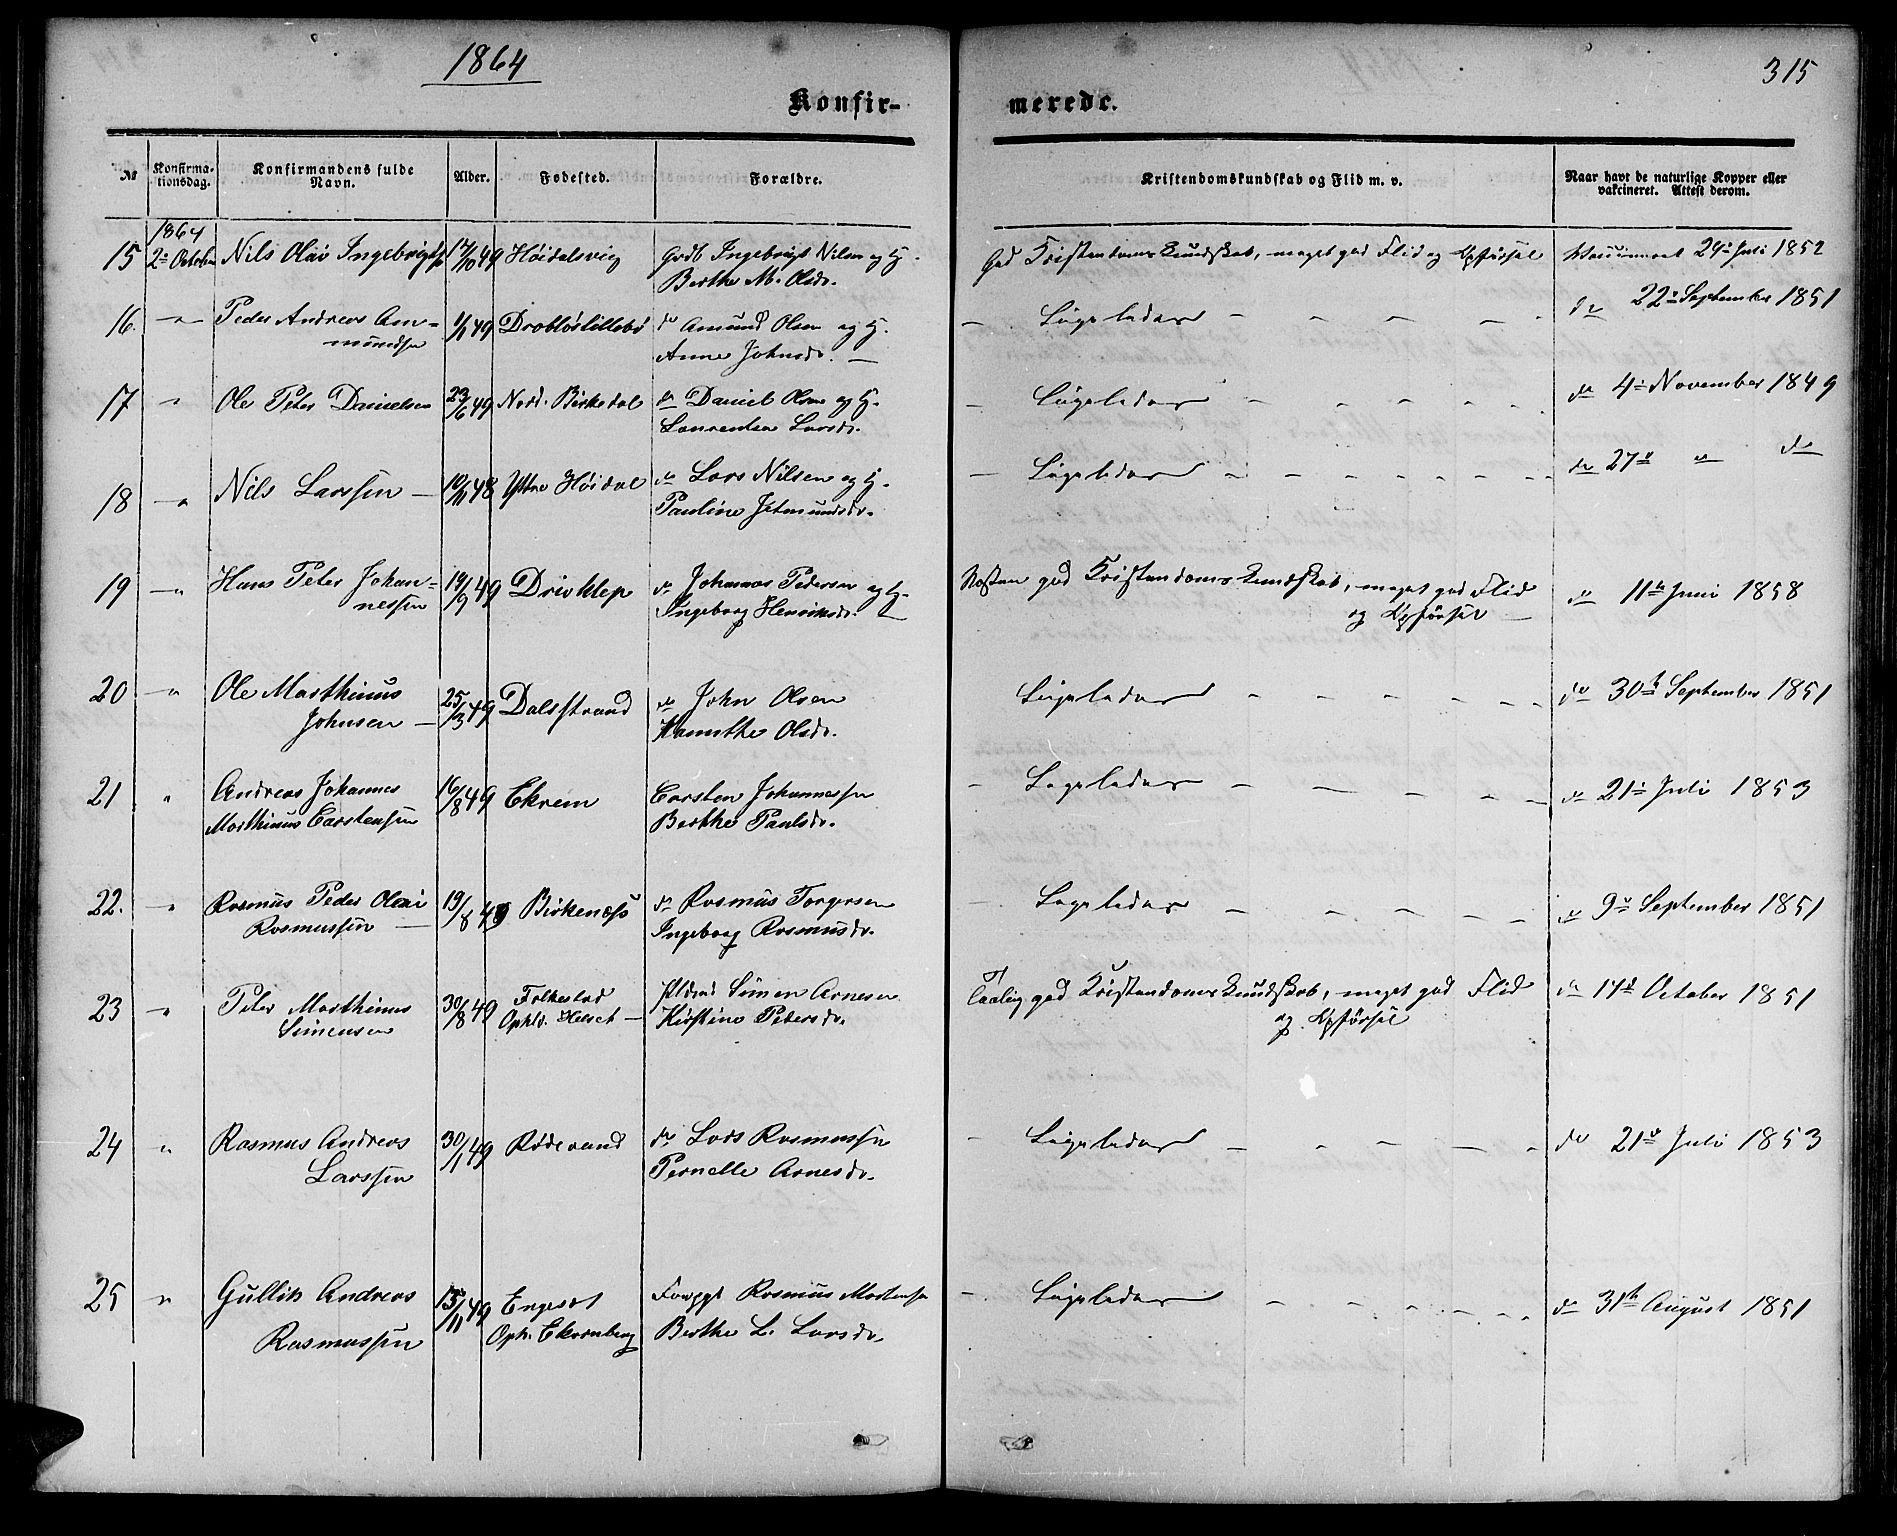 1864
315
Konfir-
merede.
№
Konfirma-
tionsdag.
Konfirmandens fulde
Navn.
Alder.
Fødested.
Forældre.
Kristendomskundskab og Flid m. v.
Naar havt de naturlige Kopper eller
vakcineret. Attest derom.
1864
15 2den October Nils Olai 17/10 49 Høidalsvig Grdb Ingebrigt Nilsen og Hj.
Berthe M. Olsdr.
God Kristendomskundskab, meget god Flid og Opførsel
Vaccineret 29de Juli 1852
16. " Peder Andreas Am-
mundsen 49 do Amund Olsen og Hj.
Anne Johnsdr. —
— Ligeledes — — — — do 22de September 1851
17 " Ole Peter Danielsen 23/6 49 Nord. Birkedal do Daniel Olsen og Hj.
Laurentse Larsdr.
— Ligeledes — — — — do 4de November 1849
18 " Nils Larssen — 10/11 48 Ytre Høidal do Lars Nilsen og Hj.
Pauline Jetmundsdr.
— Ligeledes — — — — do 27de " do
19 " Hans Peter Johan-
nessen 19/9 49 Drivklep do Johannes Pedersen og Hj.
Ingeborg Henriksdr.
Næsten god Kristendomskundskab, meget god Flid
og Opførsel —
do 11te Juni 1858
20 " Ole Marthinus
Johnsen — 25/3 49 Dalsstrand do John Olsen
Olsdr.
Ligeledes — — — — do 30te September 1851
21 " Andreas Johannes
Marthinus Carstensen 16/8 49 Ekrem Carsten Johannessen
Berthe Paulsdr.
— Ligeledes — — — — do 21de Juli 1853
22. " Rasmus Peder Olai
Rasmussen — 19/8 49 Birkenæs do Rasmus Torgersen
Ingeborg Rasmusdr.
— Ligeledes — — — — do 9de September 1851
23 " Peter Marthinus
Simensen 30/8 49 Folkestad
Ophld. Helset — Simen Arnesen
Kirstine Pedersdr.
Taalig god Kristendomskundskab, meget god Flid
og Opførsel
do 14de October 1851
24 " Rasmus Andreas
Larssen 30/1 49 Rødevand do Lars Rasmussen
Pernelle Arnesdr.
— Ligeledes — — — — do 21de Juli 1853
25 " Gullik Andreas
Rasmussen 15/11 49 Engeset
Oph. Ekornberg Forpgt Rasmus Mortensen
Berthe L. Larsdr.
— Ligeledes — — — — do 31te August 1851